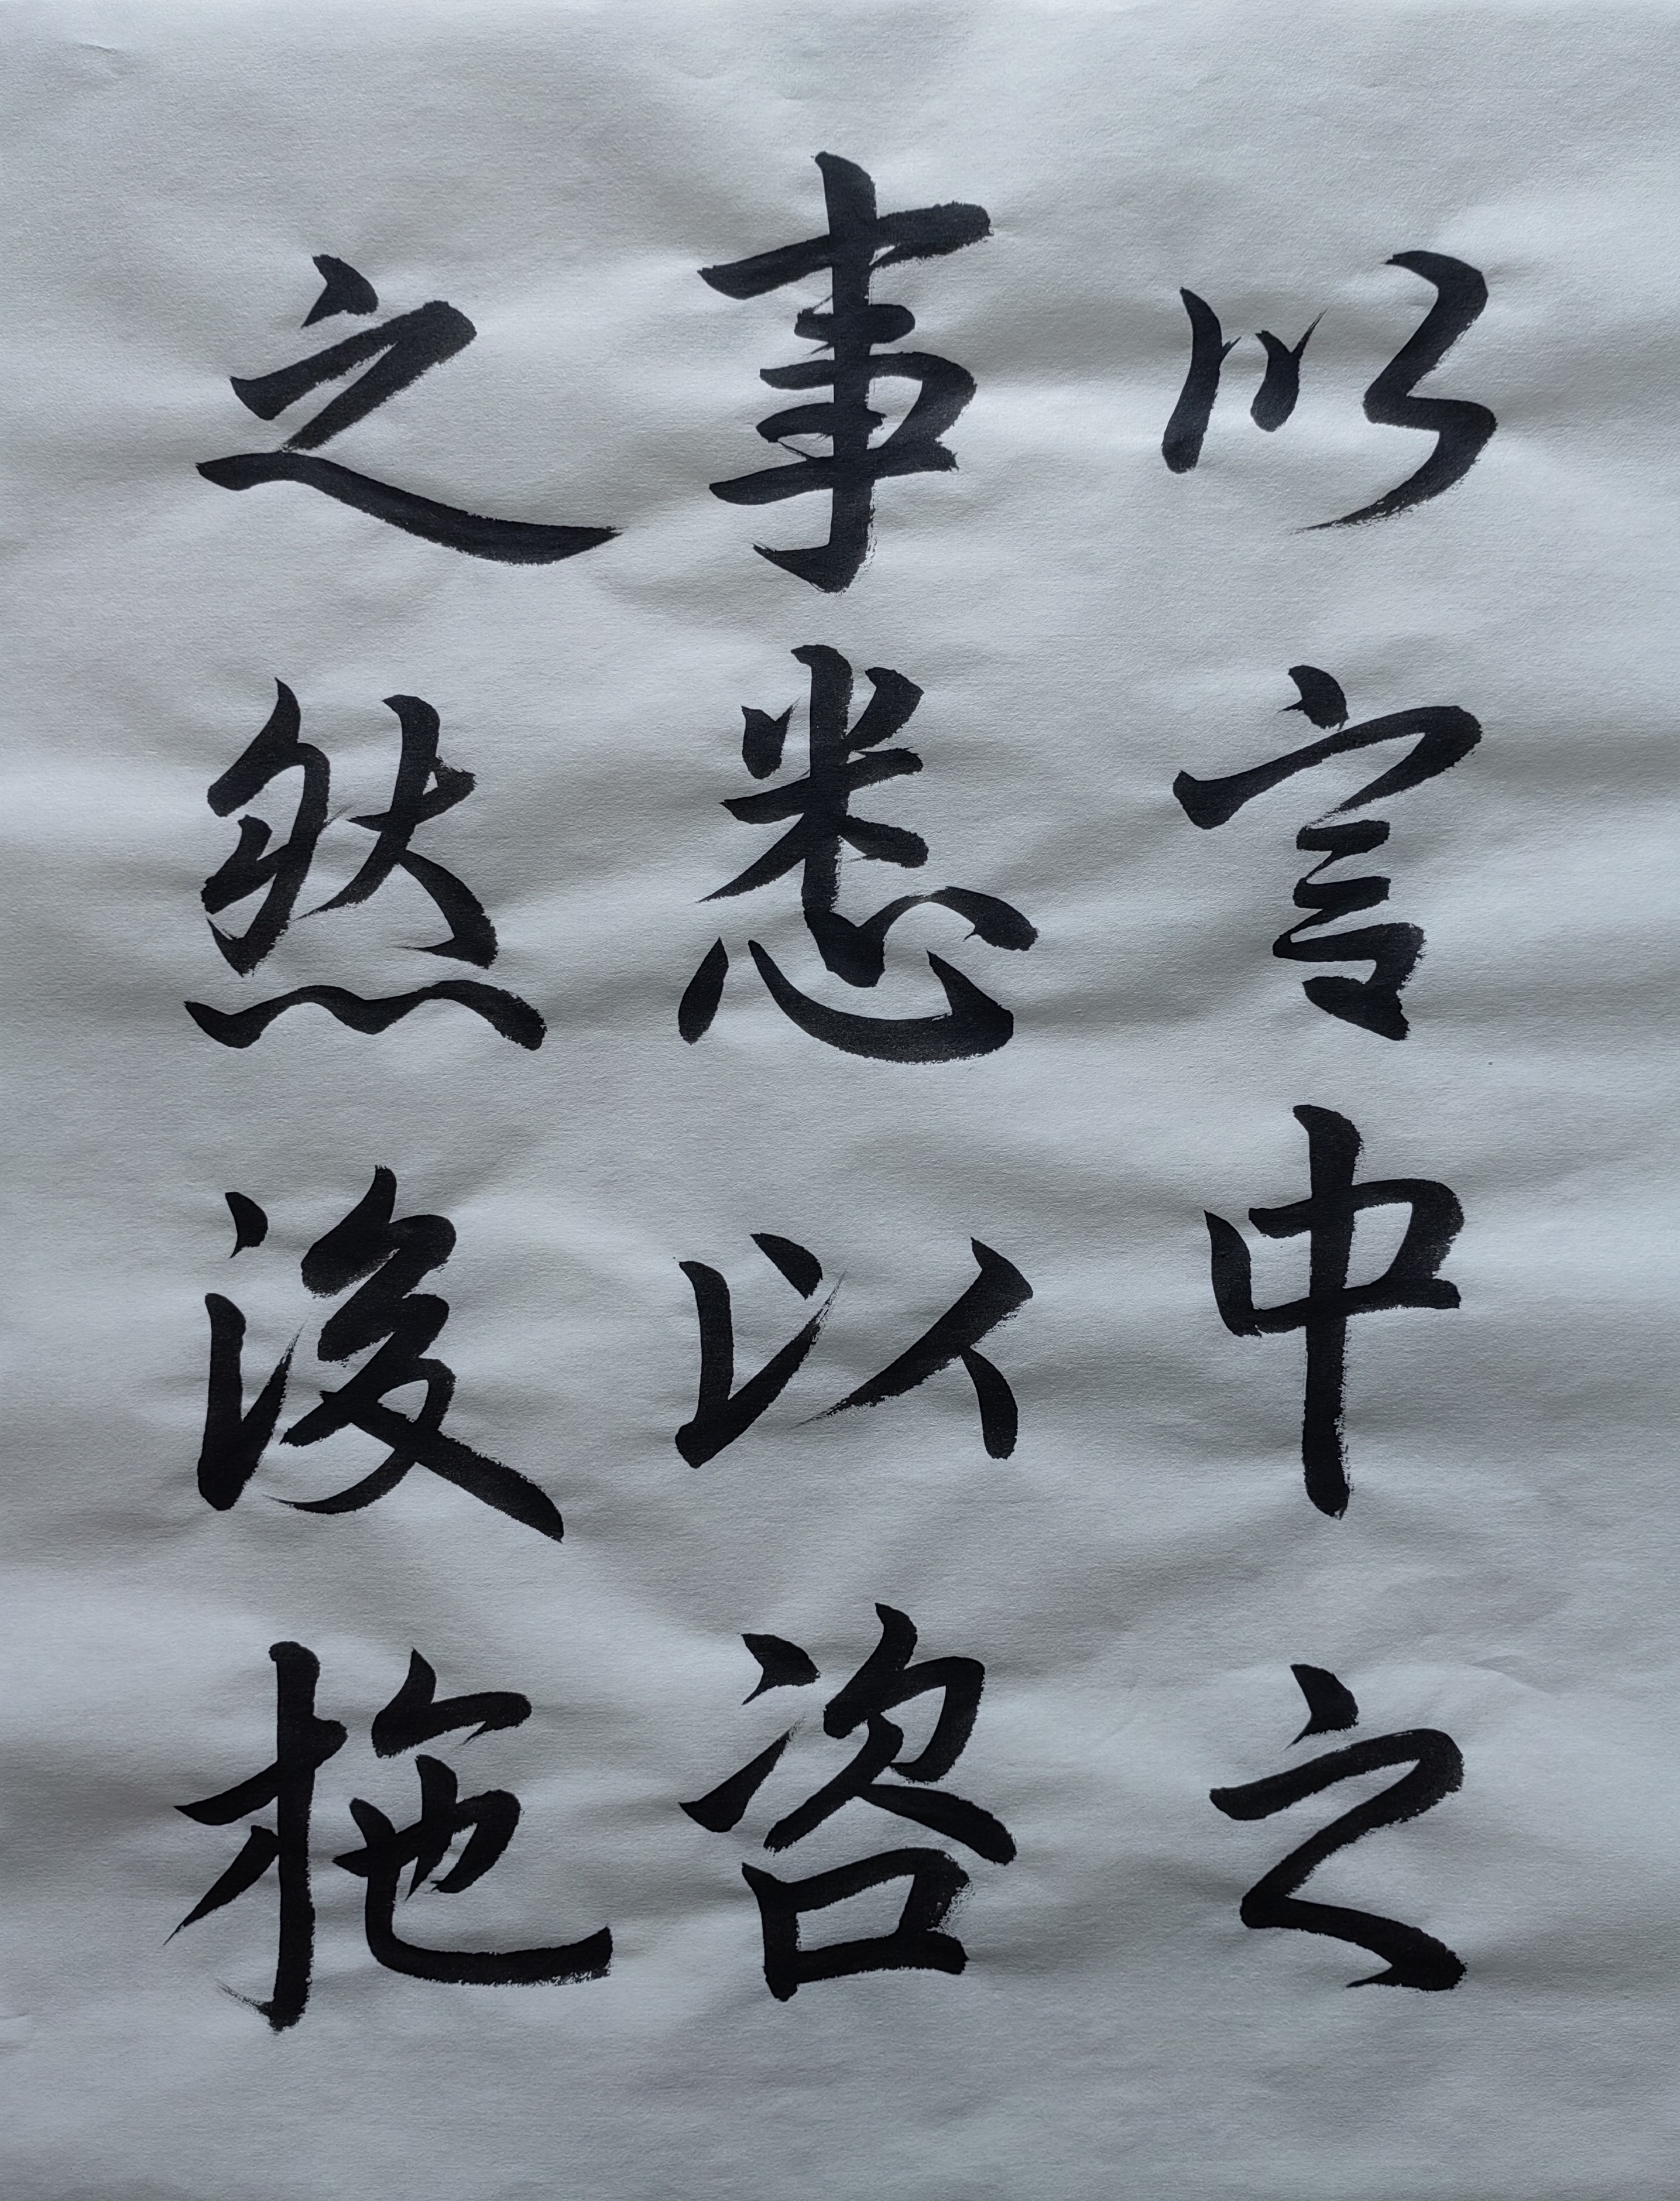 以言中之
事悉以咨
之然後拖